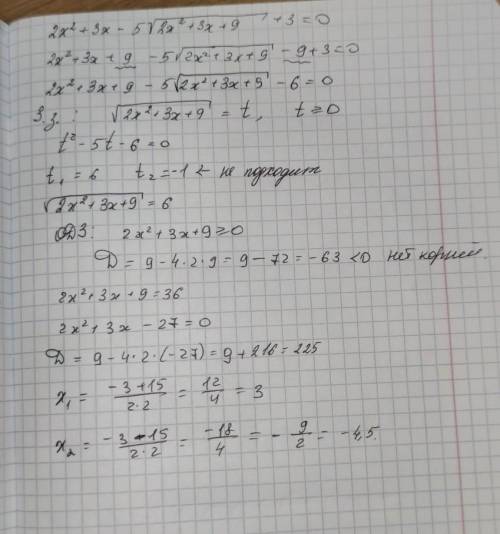 2x² + 3x - 5√(2x² + 3x + 9) + 3 = 0
2x² + 3x + 9 - 5√(2x² + 3x + 9) - 9 + 3 = 0
2x² + 3x + 9 - 5√(2x² + 3x + 9) - 6 = 0
З.з.: √(2x² + 3x + 9) = t, t ≥ 0
t² - 5t - 6 = 0
t₁ = 6 t₂ = -1 ← не подходит
√(2x² + 3x + 9) = 6
ОДЗ: 2x² + 3x + 9 ≥ 0
D = 9 - 4·2·9 = 9 - 72 = -63 < 0 нет корней.
2x² + 3x + 9 = 36
2x² + 3x - 27 = 0
D = 9 - 4·2·(-27) = 9 + 216 = 225
x₁ = (-3 + 15)/(2·2) = 12/4 = 3
x₂ = (-3 - 15)/(2·2) = -18/4 = -9/2 = -4,5.